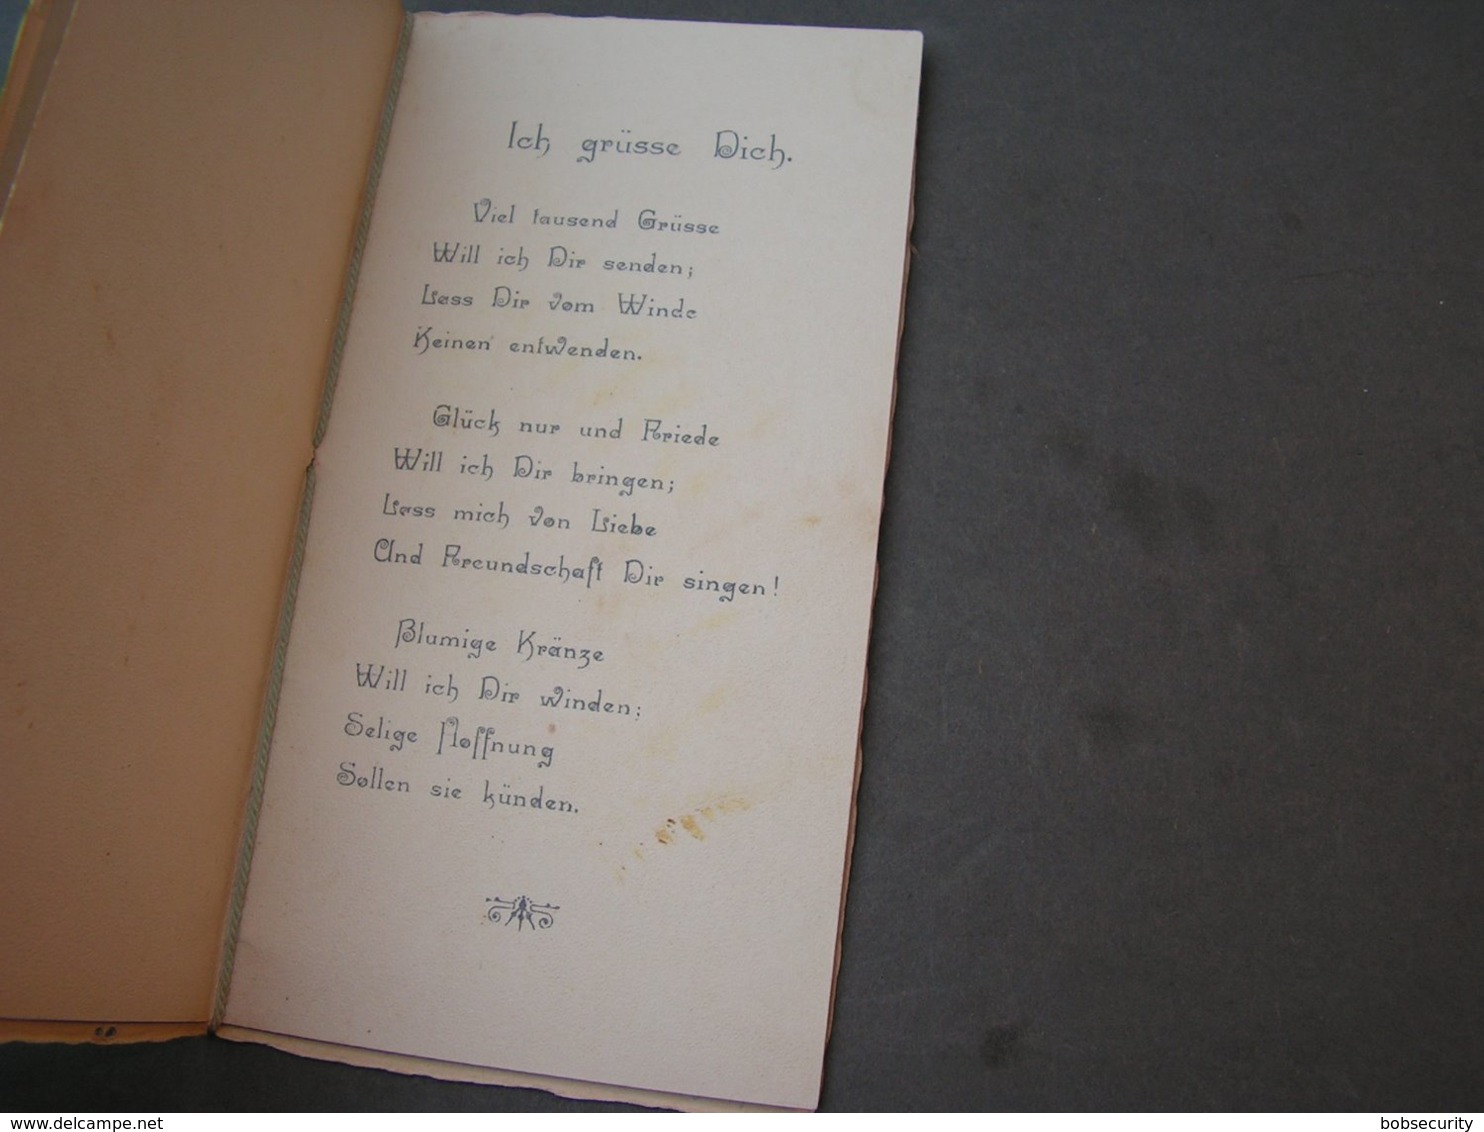 Ich grüsse Dich.
Viel tausend Grüsse
Will ich Dir senden;
Lass Dir vom Winde
Keinen entwenden.
Glück nur und Friede
Will ich Dir bringen;
Lass mich von Liebe
Und Freundschaft Dir singen!
Blumige Kränze
Will ich Dir winden;
Selige Hoffnung
Sollen sie künden.
www.delcampe.net
bobsecurity